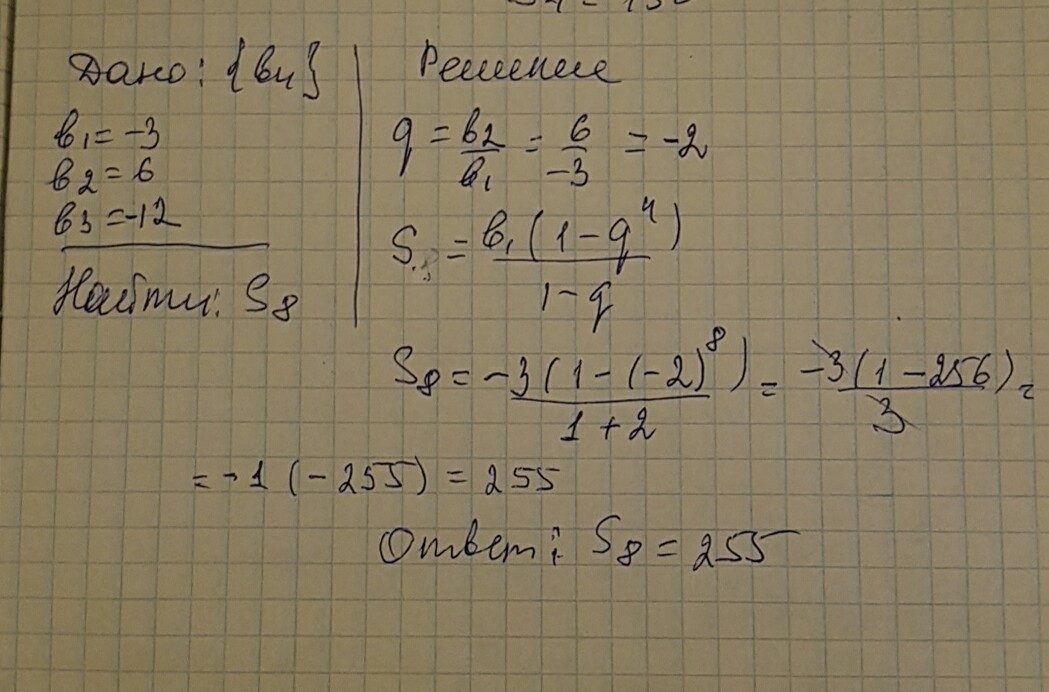 Дано: {bn}
b1 = -3
b2 = 6
b3 = -12
Найти: S8
Решение
q = b2/b1 = 6/-3 = -2
S = b1(1-q^n)/1-q
S8 = -3(1-(-2)^8)/1+2 = -3(1-256)/3 =
= -1(-255) = 255
Ответ: S8 = 255